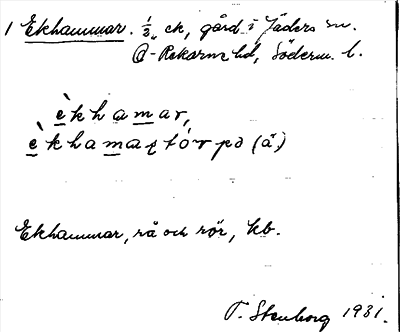 1 Ekhammar. 1/2 ck, gård i Jäders sn.
Ö-Rekarne hd, Söderm. l.
èkhamar,
èkhamaṣtórpə (å)
Ekhammar, rå och rör, kb.
T. Stenborg 1931.